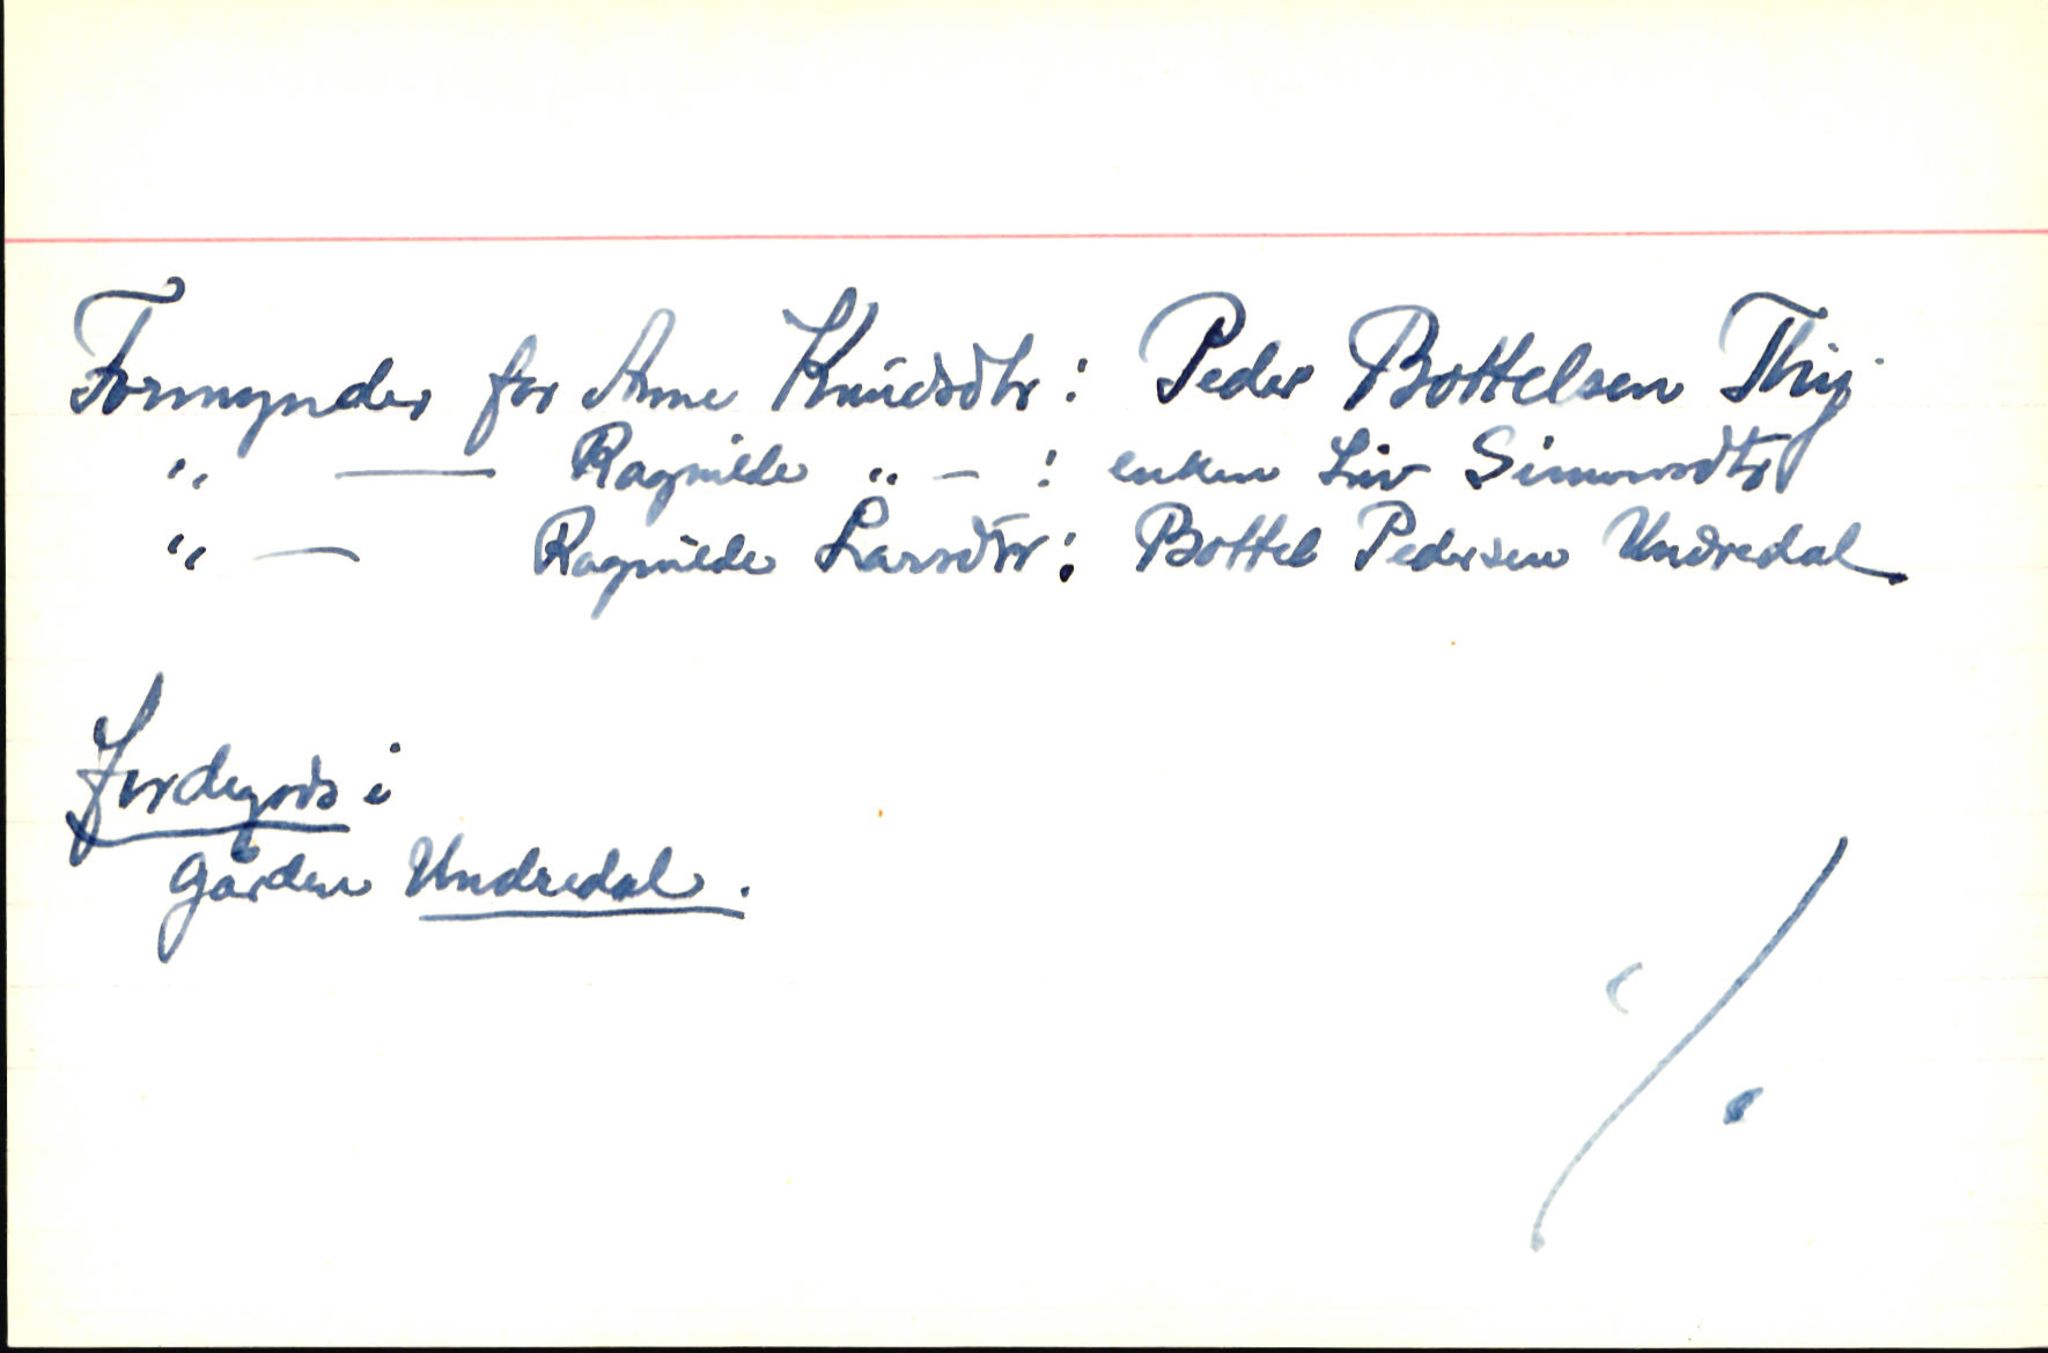 Formynder for Anne Knudsdtr: Peder Bottelsen
" — Ragnilde " — : enken Liv Simonsdtr
" — Ragnilde Larsdtr: Bottel Pedersen Undredal
Jordegods i
gården Undredal.